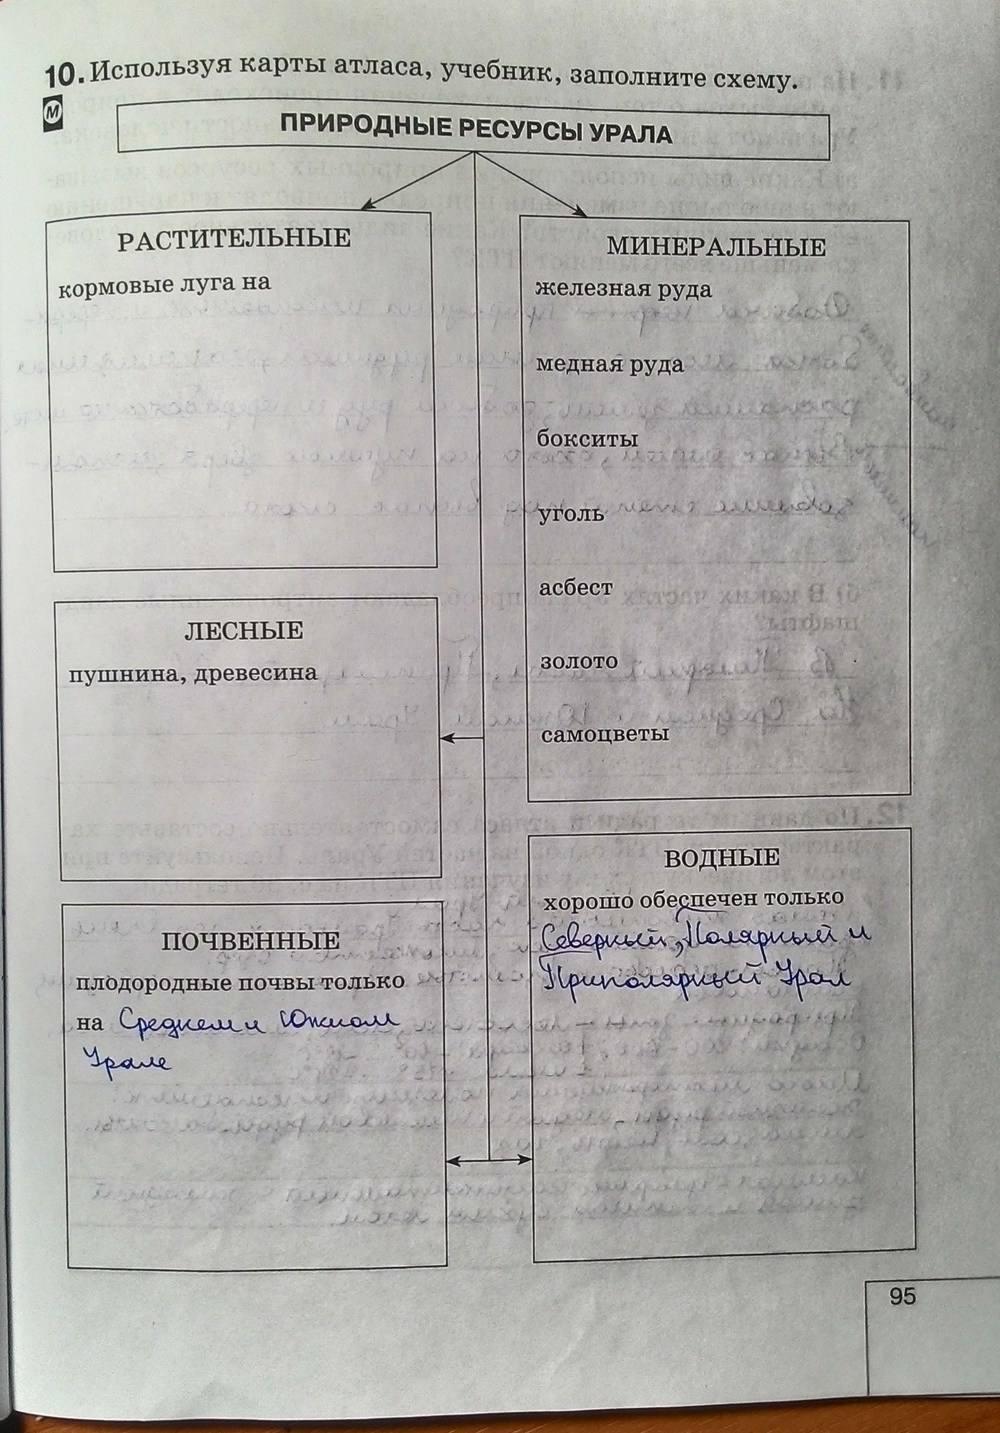 10. Используя карты атласа, учебник, заполните схему.
М
ПРИРОДНЫЕ РЕСУРСЫ УРАЛА
РАСТИТЕЛЬНЫЕ
кормовые луга на
МИНЕРАЛЬНЫЕ
железная руда
медная руда
бокситы
уголь
асбест
золото
самоцветы
ЛЕСНЫЕ
пушнина, древесина
ПОЧВЕННЫЕ
плодородные почвы только
на Среднем и Южном
Урале
ВОДНЫЕ
хорошо обеспечен только
Северный, Полярный и
Приполярный Урал
95